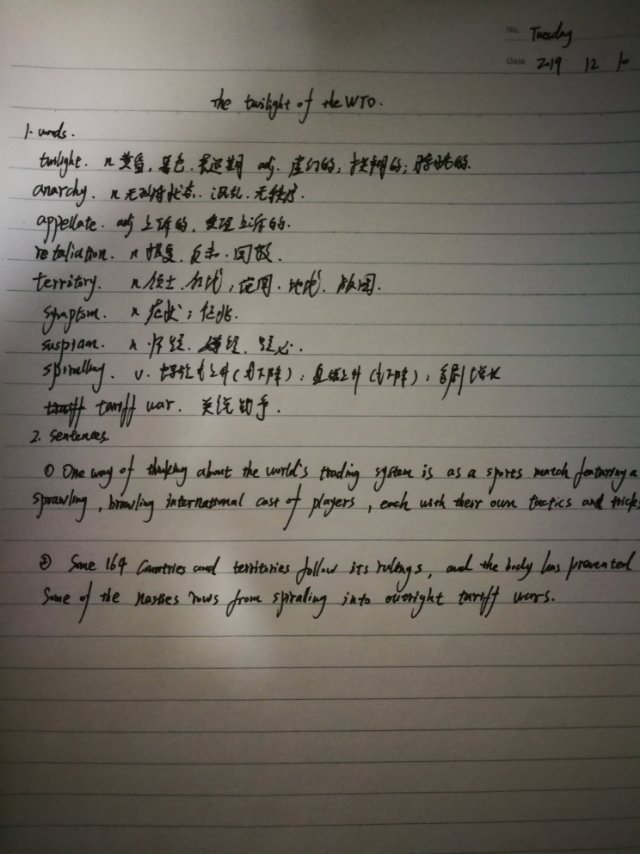 No. Tuesday
Date 2019 12 10
the twilight of the WTO.
1. words.
twilight. n 黄昏, 暮色, 衰退期 adj. 虚幻的; 模糊的; 朦胧的.
anarchy. n 无政府状态. 混乱. 无秩序.
appellate. adj 上诉的, 受理上诉的.
retaliation. n 报复. 反击. 回敬.
territory. n 领土. 领域; 范围. 地域. 版图.
symptom. n 症状; 征兆.
suspicion. n. 怀疑. 嫌疑. 疑心.
spiralling. v. 螺旋式上升(或下降); 盘旋上升(或下降); 急剧增长
tariff war. 关税战争.
2. sentences.
① One way of thinking about the world's trading system is as a sports match featuring a
sprawling, brawling international cast of players, each with their own tactics and tricks.
② Some 164 countries and territories follow its rulings, and the body has prevented
some of the nasties rows from spiraling into outright tariff wars.